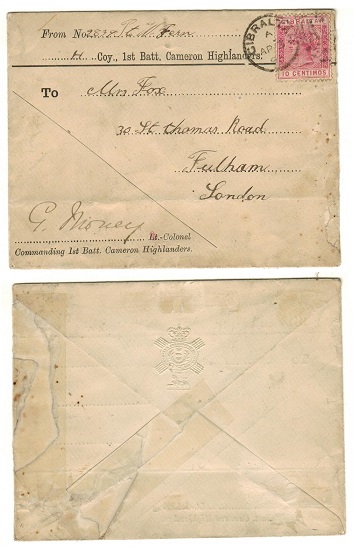 From No. Pte W. Fern
H Coy., 1st Batt. Cameron Highlanders.
GIBRALTAR
10 CENTIMOS
To Mrs Fox
30 St. Thomas Road
Fulham
London
G. Money
Lt.-Colonel
Commanding 1st Batt. Cameron Highlanders.